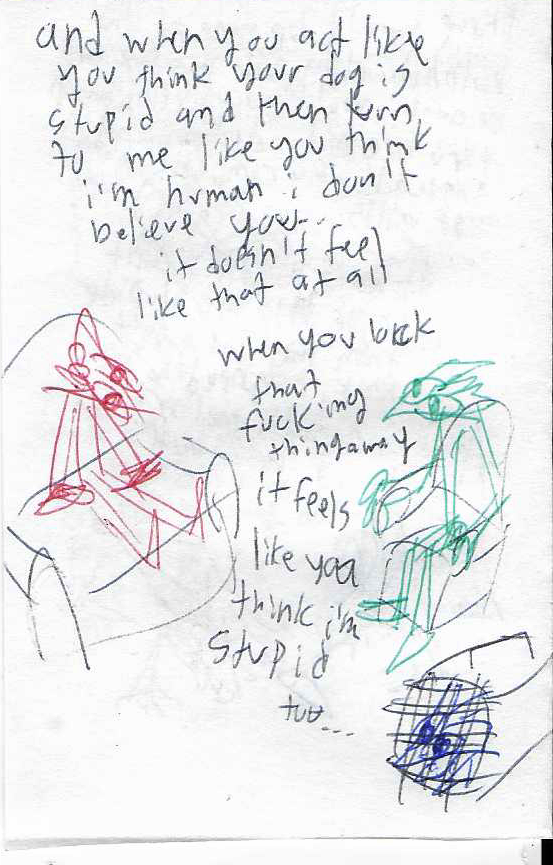 and when you act like
you think your dog is
stupid and then turn
to me like you think
i'm human i don't
believe you...
it doesn't feel
like that at all
when you lock
that
fucking
thing away
it feels
like you
think i'm
stupid
too...